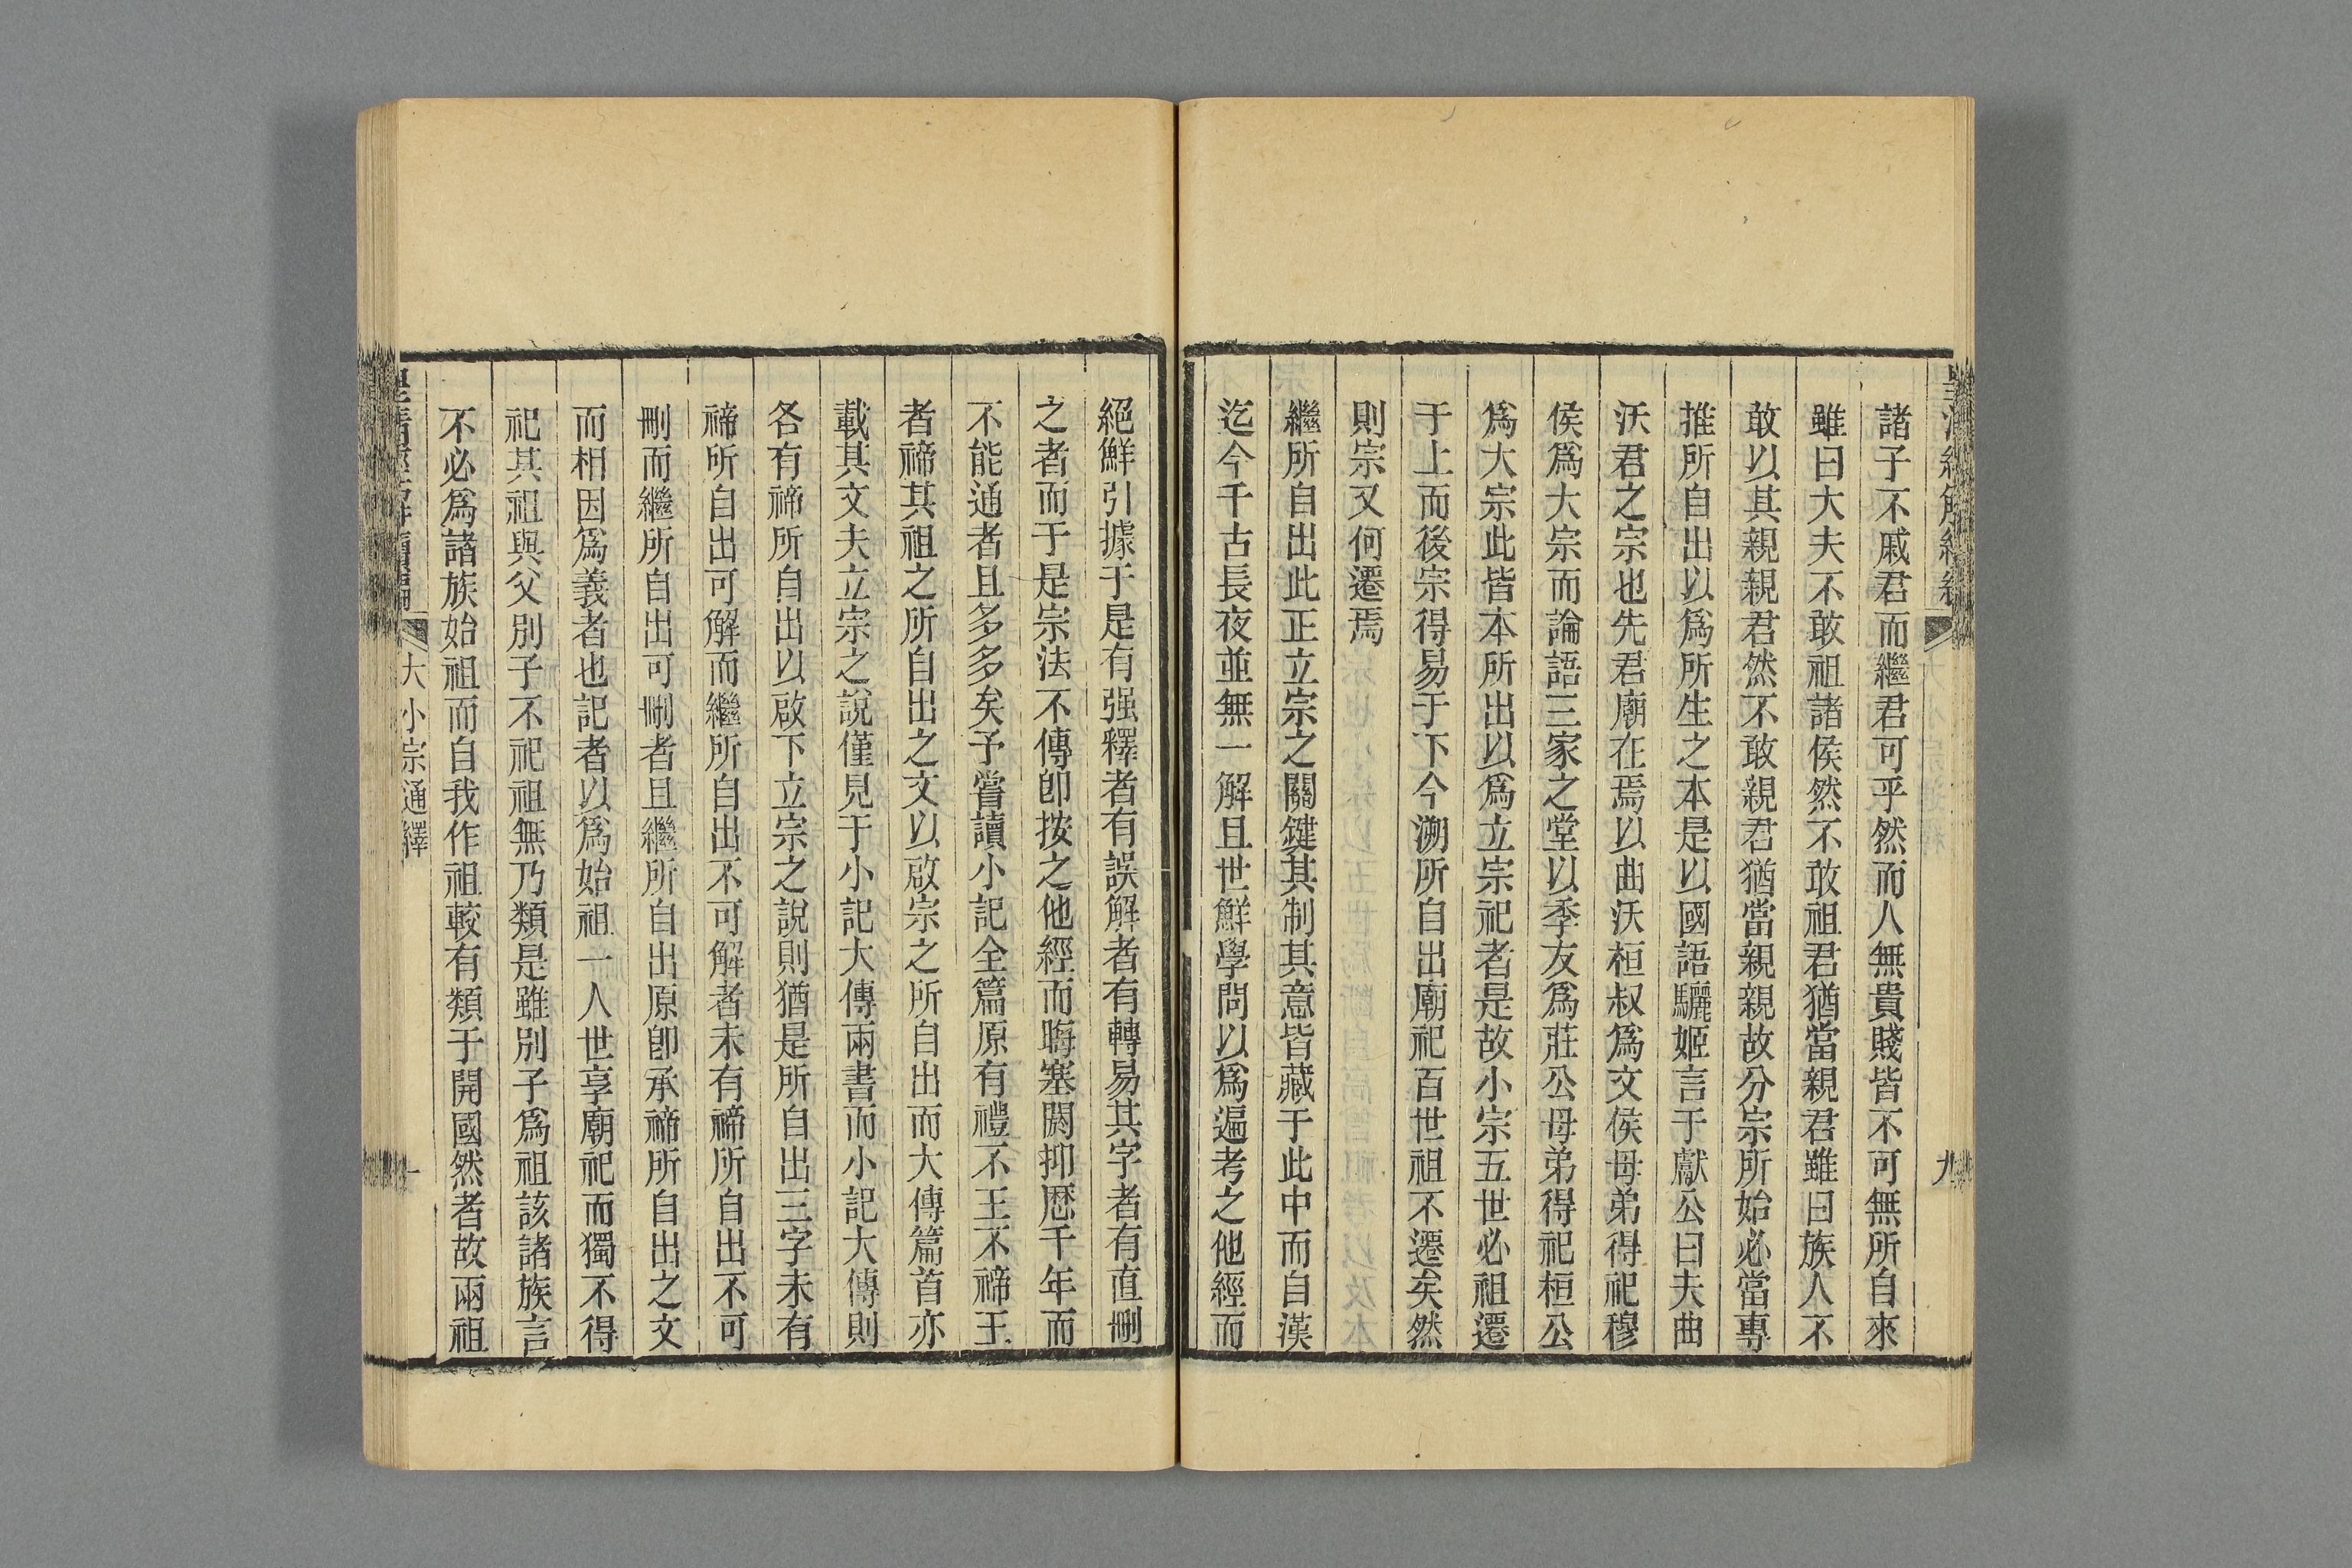 諸子不戚君而繼君可乎然而人無貴賤皆不可無所自來
雖曰大夫不敢祖諸侯然不敢祖君猶當親君雖曰族人不
敢以其親親君然不敢親君猶當親親故分宗所始必當專
推所自出以爲所生之本是以國語驪姬言于獻公曰夫曲
沃君之宗也先君廟在焉以曲沃桓叔爲文侯母弟得祀穆
侯爲大宗而論語三家之堂以季友爲莊公母弟得祀桓公
爲大宗此皆本所出以爲立宗祀者是故小宗五世必祖遷
于上而後宗得易于下今溯所自出廟祀百世祖不遷矣然
則宗又何遷焉
繼所自出此正立宗之關鍵其制其意皆藏于此中而自漢
迄今千古長夜並無一解且世鮮學問以爲遍考之他經而
絕鮮引據于是有强釋者有誤解者有轉易其字者有直刪
之者而于是宗法不傳卽按之他經而晦塞閼抑歷千年而
不能通者且多多矣予嘗讀小記全篇原有禮不王不禘王
者禘其祖之所自出之文以啟宗之所自出而大傳篇首亦
載其文夫立宗之說僅見于小記大傳兩書而小記大傳則
各有禘所自出以啟下立宗之說則猶是所自出三字未有
禘所自出可解而繼所自出不可解者未有禘所自出不可
刪而繼所自出可刪者且繼所自出原卽承禘所自出之文
而相因爲義者也記者以爲始祖一人世享廟祀而獨不得
祀其祖與父別子不祀祖無乃類是雖別子爲祖該諸族言
不必爲諸族始祖而自我作祖較有類于開國然者故兩祖
大小宗通繹
九